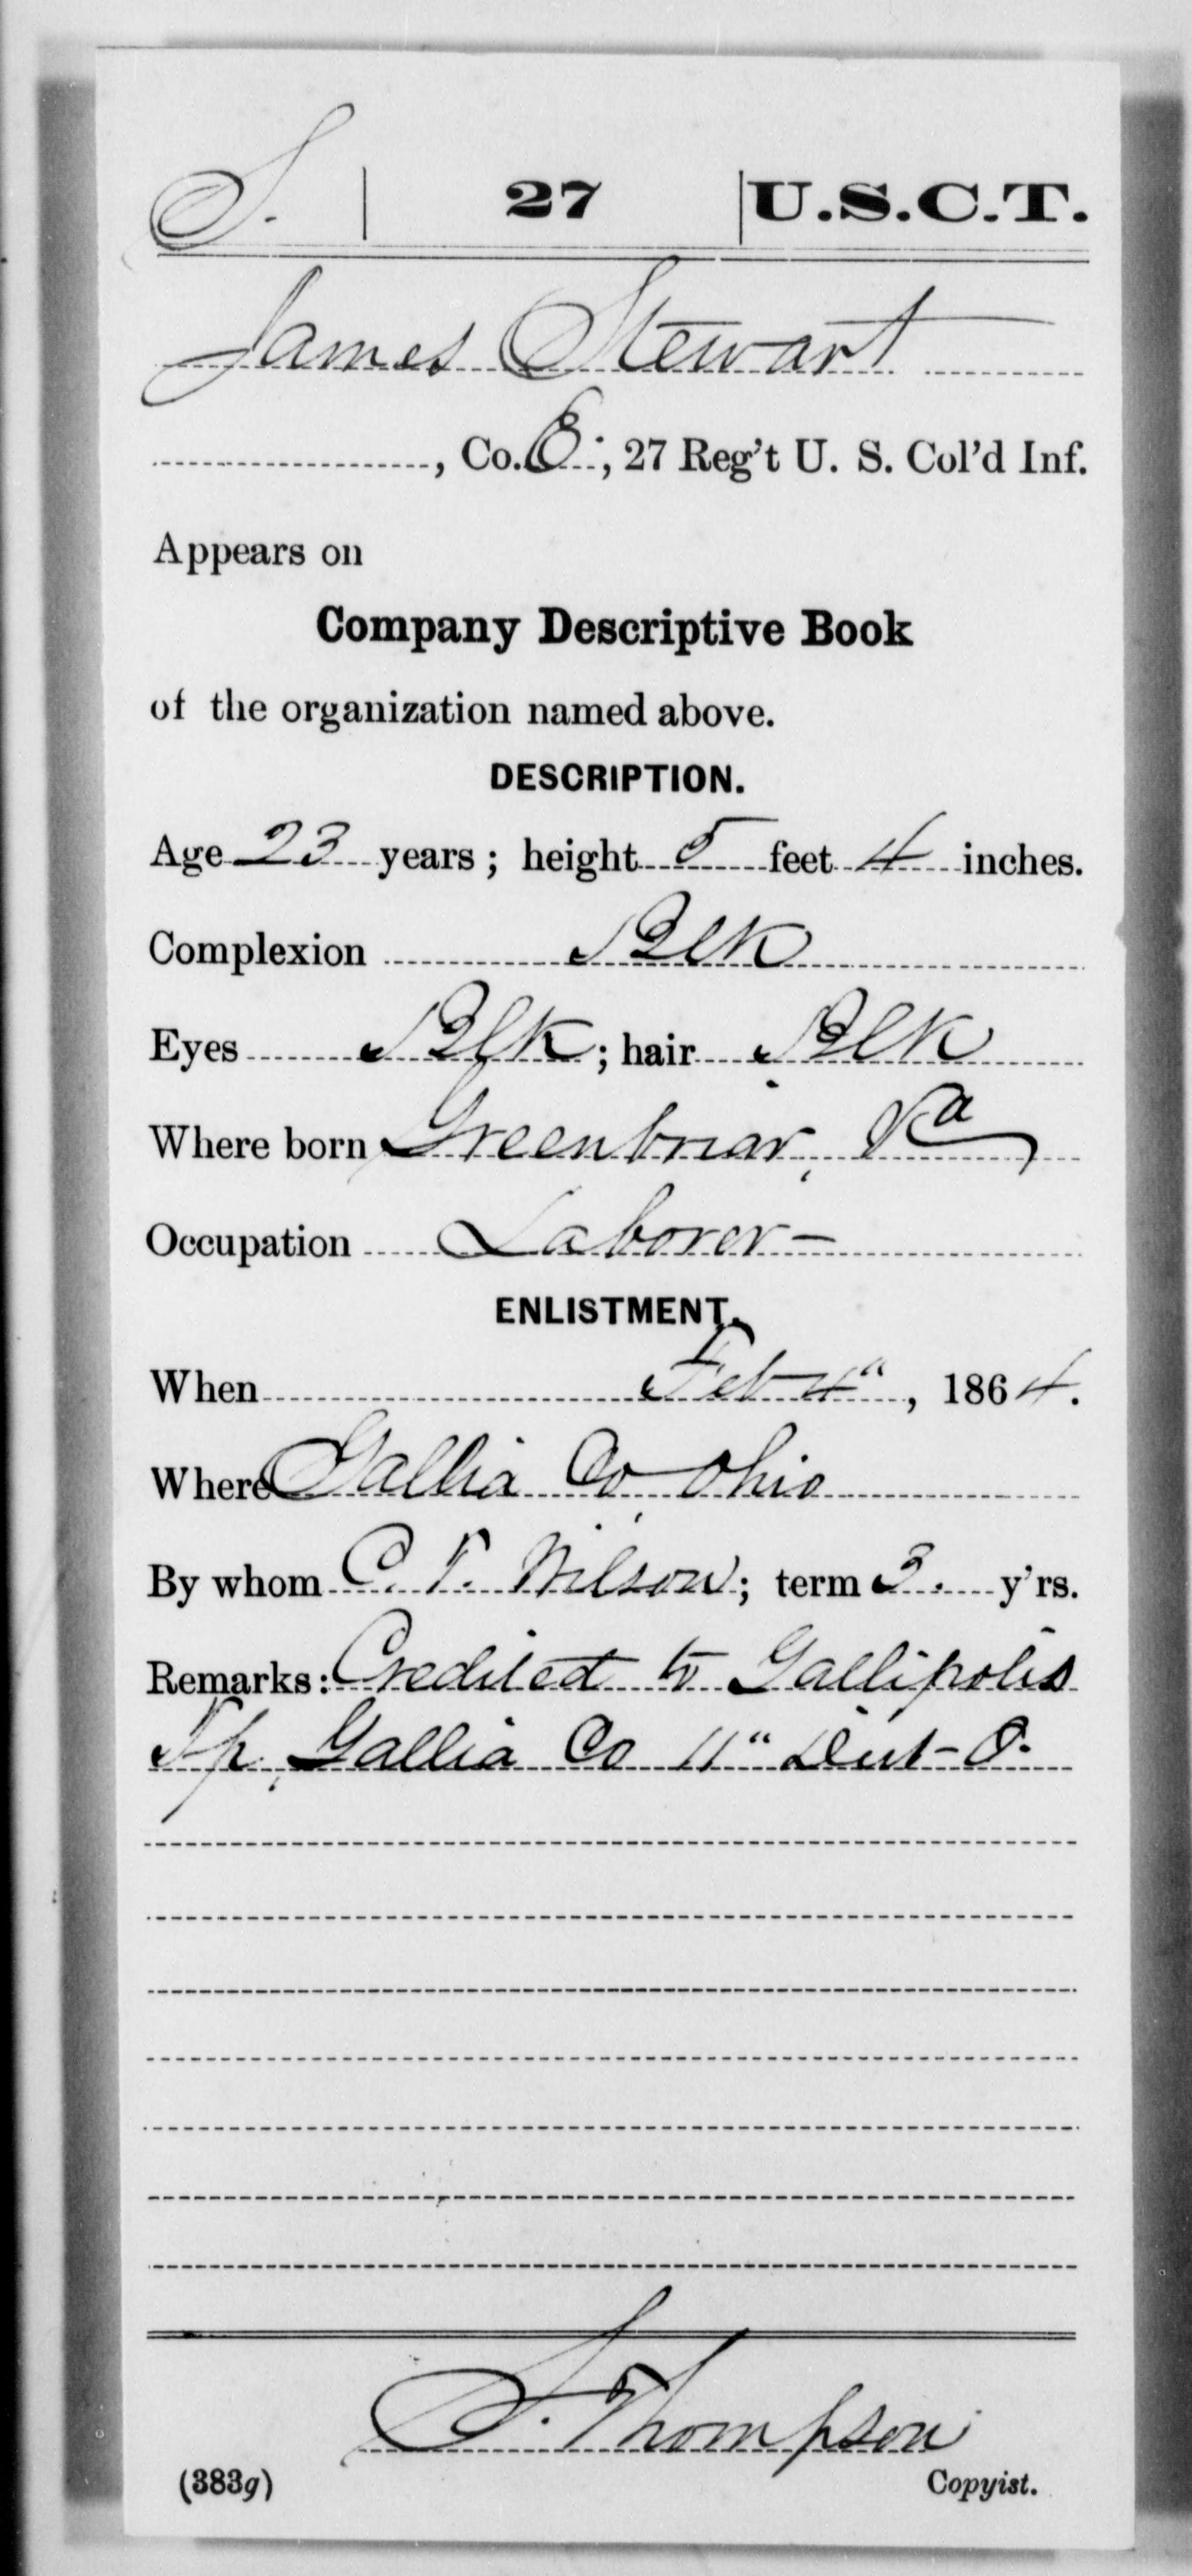 S. | 27 | U.S.C.T.
James Stewart
, Co. E; 27 Reg't U. S. Col'd Inf.
Appears on
Company Descriptive Book
of the organization named above.
DESCRIPTION.
Age 23 years; height 5 feet 4 inches.
Complexion Blk
Eyes Blk; hair Blk
Where born Greenbriar, Va
Occupation Laborer-
ENLISTMENT.
When Feb 4", 1864.
Where Gallia Co, Ohio
By whom C. T. Wilson; term 3. y'rs.
Remarks: Credited to Gallipolis
Tp, Gallia Co 11" Dist-O.
S. Thompson
(383g) Copyist.